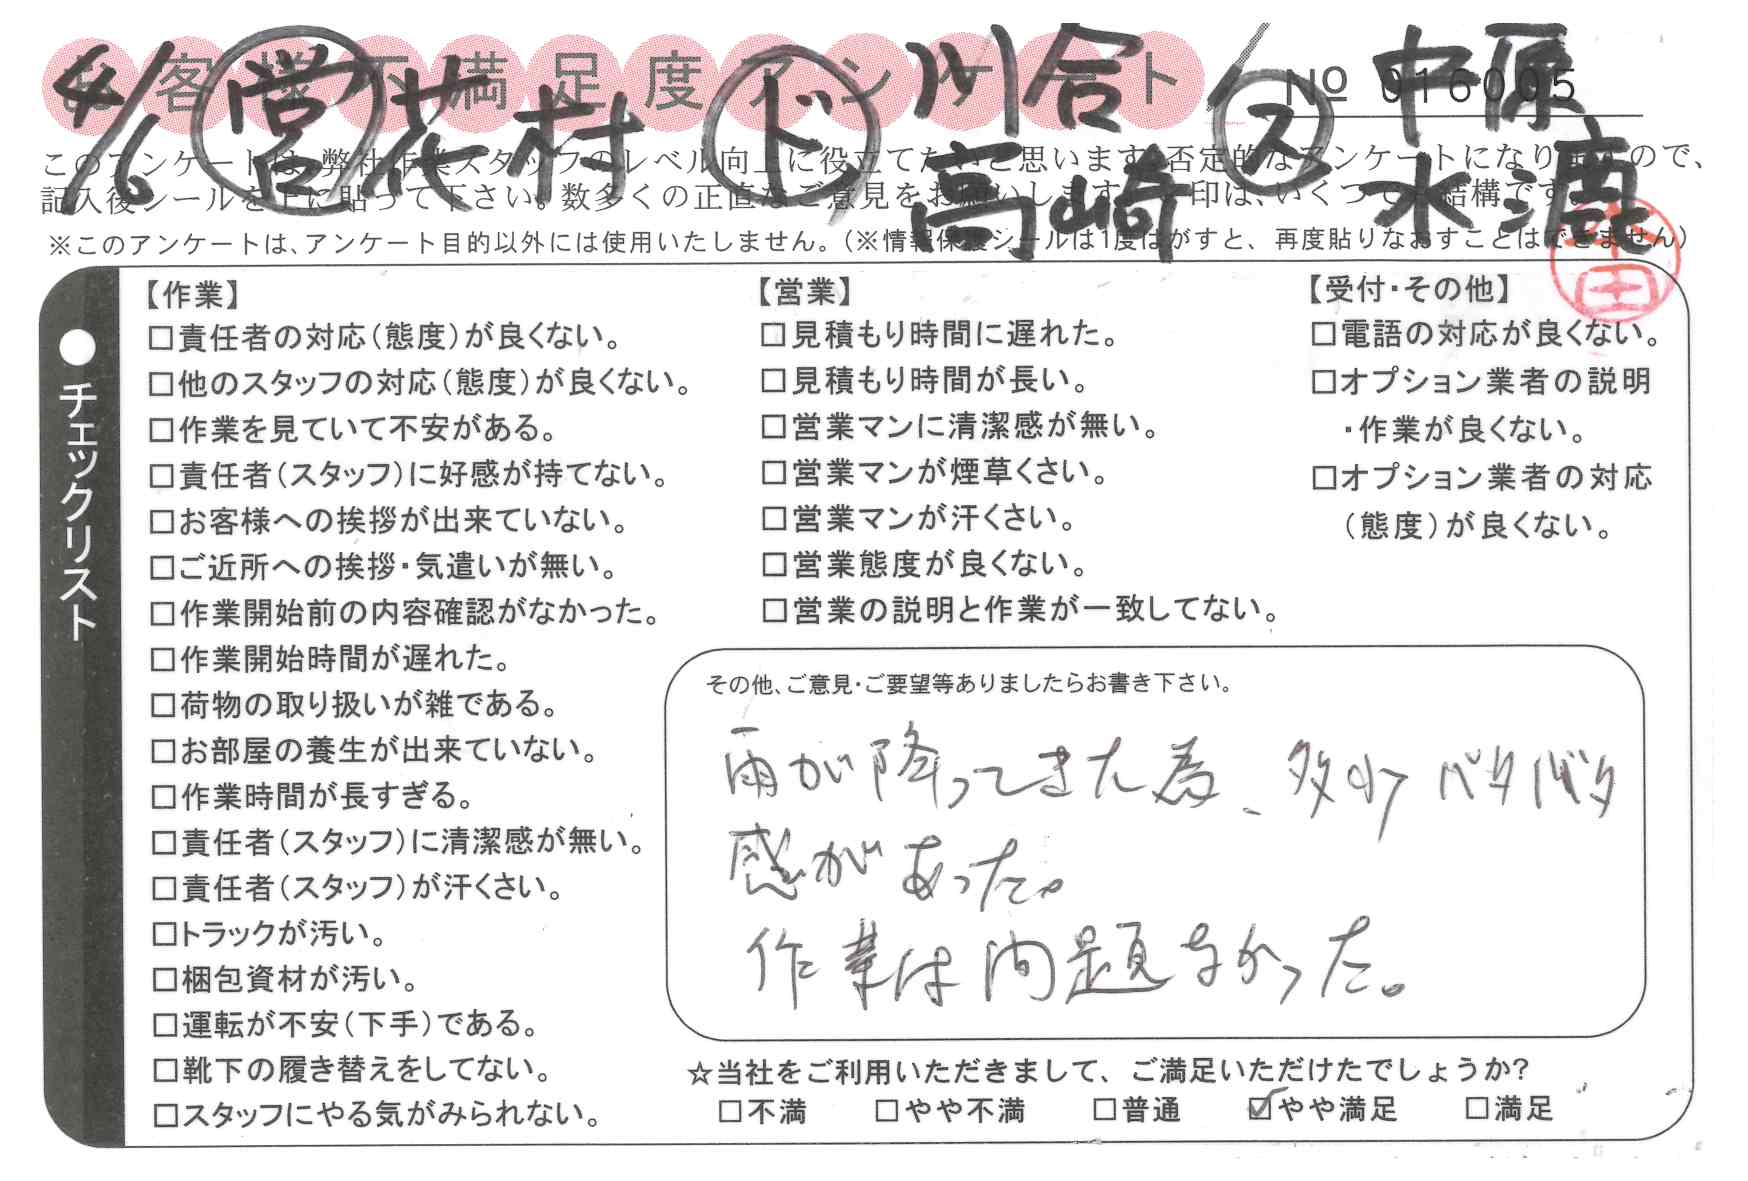 お客様不満足度アンケート
№ 016005
4/6 営 花村 ド 川合 高崎 ス 中原 水漉
このアンケートは、弊社作業スタッフのレベル向上に役立てたいと思います。否定的なアンケートになりますので、
記入後シールを上に貼って下さい。数多くの正直なご意見をお願いします。✓印は、いくつでも結構です。
※このアンケートは、アンケート目的以外には使用いたしません。（※情報保護シールは1度はがすと、再度貼りなおすことはできません）
チェックリスト
【作業】
□責任者の対応（態度）が良くない。
□他のスタッフの対応（態度）が良くない。
□作業を見ていて不安がある。
□責任者（スタッフ）に好感が持てない。
□お客様への挨拶が出来ていない。
□ご近所への挨拶・気遣いが無い。
□作業開始前の内容確認がなかった。
□作業開始時間が遅れた。
□荷物の取り扱いが雑である。
□お部屋の養生が出来ていない。
□作業時間が長すぎる。
□責任者（スタッフ）に清潔感が無い。
□責任者（スタッフ）が汗くさい。
□トラックが汚い。
□梱包資材が汚い。
□運転が不安（下手）である。
□靴下の履き替えをしてない。
□スタッフにやる気がみられない。
【営業】
□見積もり時間に遅れた。
□見積もり時間が長い。
□営業マンに清潔感が無い。
□営業マンが煙草くさい。
□営業マンが汗くさい。
□営業態度が良くない。
□営業の説明と作業が一致してない。
【受付・その他】
□電話の対応が良くない。
□オプション業者の説明
・作業が良くない。
□オプション業者の対応
（態度）が良くない。
その他、ご意見・ご要望等ありましたらお書き下さい。
雨が降ってきた為、多少バタバタ
感があった。
作業は問題なかった。
☆当社をご利用いただきまして、ご満足いただけたでしょうか?
□不満 □やや不満 □普通 ☑やや満足 □満足